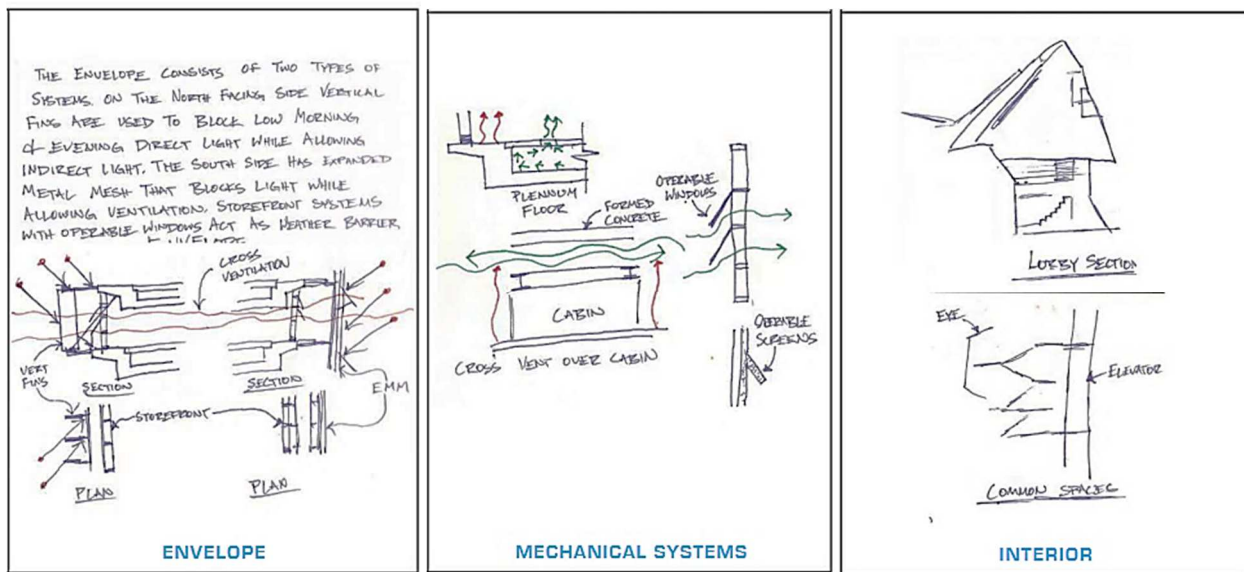 THE ENVELOPE CONSISTS OF TWO TYPES OF
SYSTEMS. ON THE NORTH FACING SIDE VERTICAL
FINS ARE USED TO BLOCK LOW MORNING
& EVENING DIRECT LIGHT WHILE ALLOWING
INDIRECT LIGHT. THE SOUTH SIDE HAS EXPANDED
METAL MESH THAT BLOCKS LIGHT WHILE
ALLOWING VENTILATION. STOREFRONT SYSTEMS
WITH OPERABLE WINDOWS ACT AS WEATHER BARRIER
CROSS
VENTILATION
VERT
FINS
SECTION
SECTION
EMM
STOREFRONT
PLAN
PLAN
ENVELOPE
PLENNUM
FLOOR
OPERABLE
WINDOWS
FORMED
CONCRETE
CABIN
OPERABLE
SCREENS
CROSS VENT OVER CABIN
MECHANICAL SYSTEMS
LOBBY SECTION
EYE
ELEVATOR
COMMON SPACES
INTERIOR